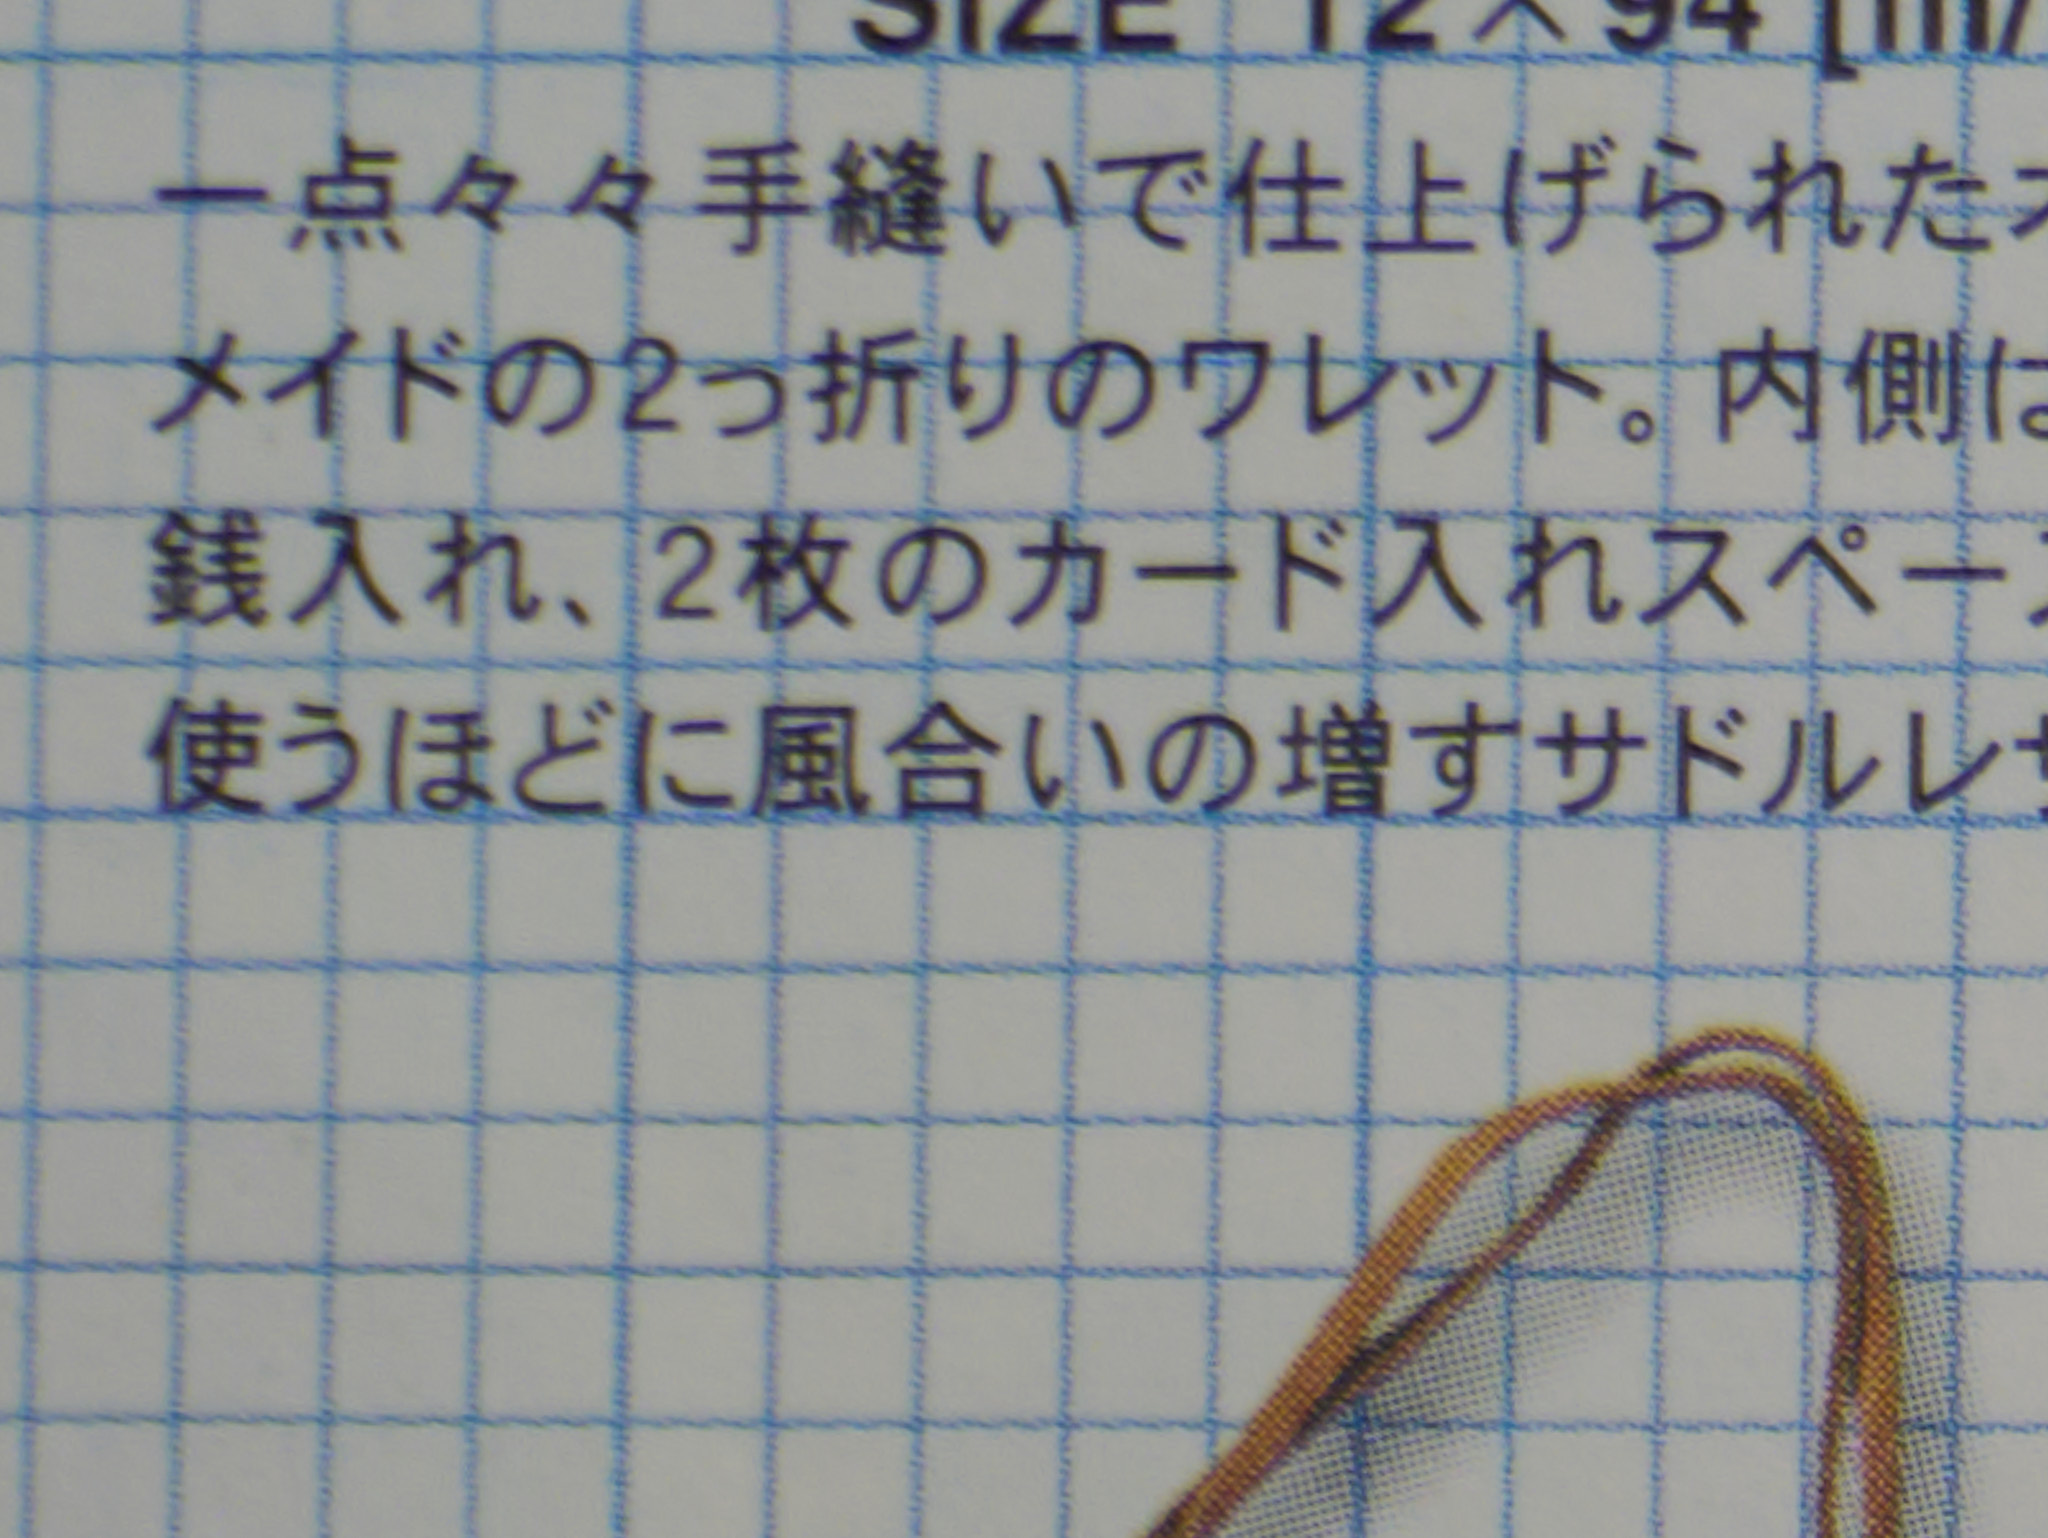 SIZE 12×94 [m/
一点々々手縫いで仕上げられたオ
メイドの2つ折りのワレット。内側は
銭入れ、2枚のカード入れスペース
使うほどに風合いの増すサドルレザ